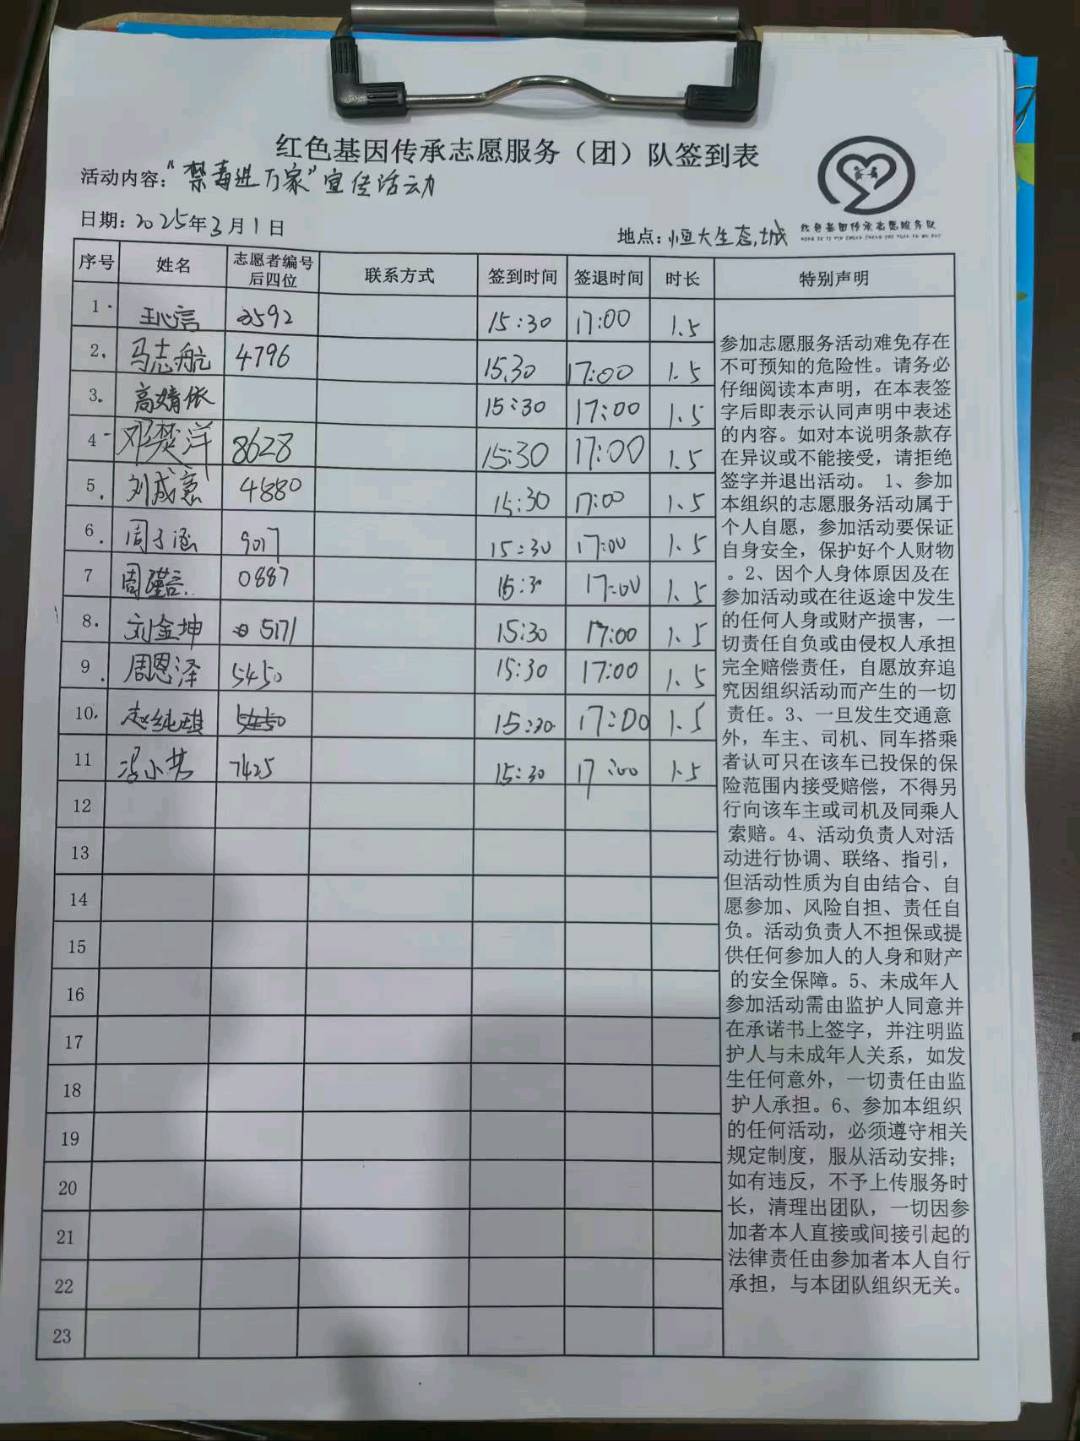 红色基因传承志愿服务（团）队签到表
活动内容："禁毒进万家"宣传活动
日期：2025年3月1日
地点：恒大生态城
红色基因传承志愿服务队
序号 姓名 志愿者编号后四位 联系方式 签到时间 签退时间 时长 特别声明
1. 王心言 3592 15:30 17:00 1.5
2. 马志航 4796 15:30 17:00 1.5
3. 高婧依 15:30 17:00 1.5
4. 邓楚洋 8628 15:30 17:00 1.5
5. 刘成意 4880 15:30 17:00 1.5
6. 周子涵 9017 15:30 17:00 1.5
7 周瑾言 0887 15:3 17:00 1.5
8. 刘金坤 5171 15:30 17:00 1.5
9. 周恩泽 5450 15:30 17:00 1.5
10. 赵纯琪 15:30 17:00 1.5
11 冯小芸 7425 15:30 17:00 1.5
12
13
14
15
16
17
18
19
20
21
22
23
参加志愿服务活动难免存在
不可预知的危险性。请务必
仔细阅读本声明，在本表签
字后即表示认同声明中表述
的内容。如对本说明条款存
在异议或不能接受，请拒绝
签字并退出活动。 1、参加
本组织的志愿服务活动属于
个人自愿，参加活动要保证
自身安全，保护好个人财物
。2、因个人身体原因及在
参加活动或在往返途中发生
的任何人身或财产损害，一
切责任自负或由侵权人承担
完全赔偿责任，自愿放弃追
究因组织活动而产生的一切
责任。3、一旦发生交通意
外，车主、司机、同车搭乘
者认可只在该车已投保的保
险范围内接受赔偿，不得另
行向该车主或司机及同乘人
索赔。4、活动负责人对活
动进行协调、联络、指引，
但活动性质为自由结合、自
愿参加、风险自担、责任自
负。活动负责人不担保或提
供任何参加人的人身和财产
的安全保障。5、未成年人
参加活动需由监护人同意并
在承诺书上签字，并注明监
护人与未成年人关系，如发
生任何意外，一切责任由监
护人承担。6、参加本组织
的任何活动，必须遵守相关
规定制度，服从活动安排；
如有违反，不予上传服务时
长，清理出团队，一切因参
加者本人直接或间接引起的
法律责任由参加者本人自行
承担，与本团队组织无关。